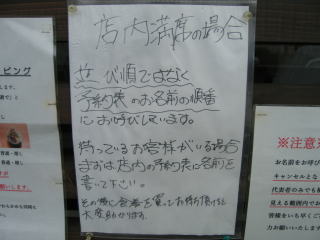 店内満席の場合
並び順ではなく
予約表のお名前の順番
にお呼びしています。
待っているお客様がいる場合
まずは店内の予約表に名前を
書いて下さい。
その際に食券を買ってお待ち頂けると
大変助かります。
ッピング
します。
普通・増し
普通・増し
お願いします。
※注意※
お名前をお呼び
キャンセルとな
代表者のみでも
見える範囲内でお
皆様をいち早くご